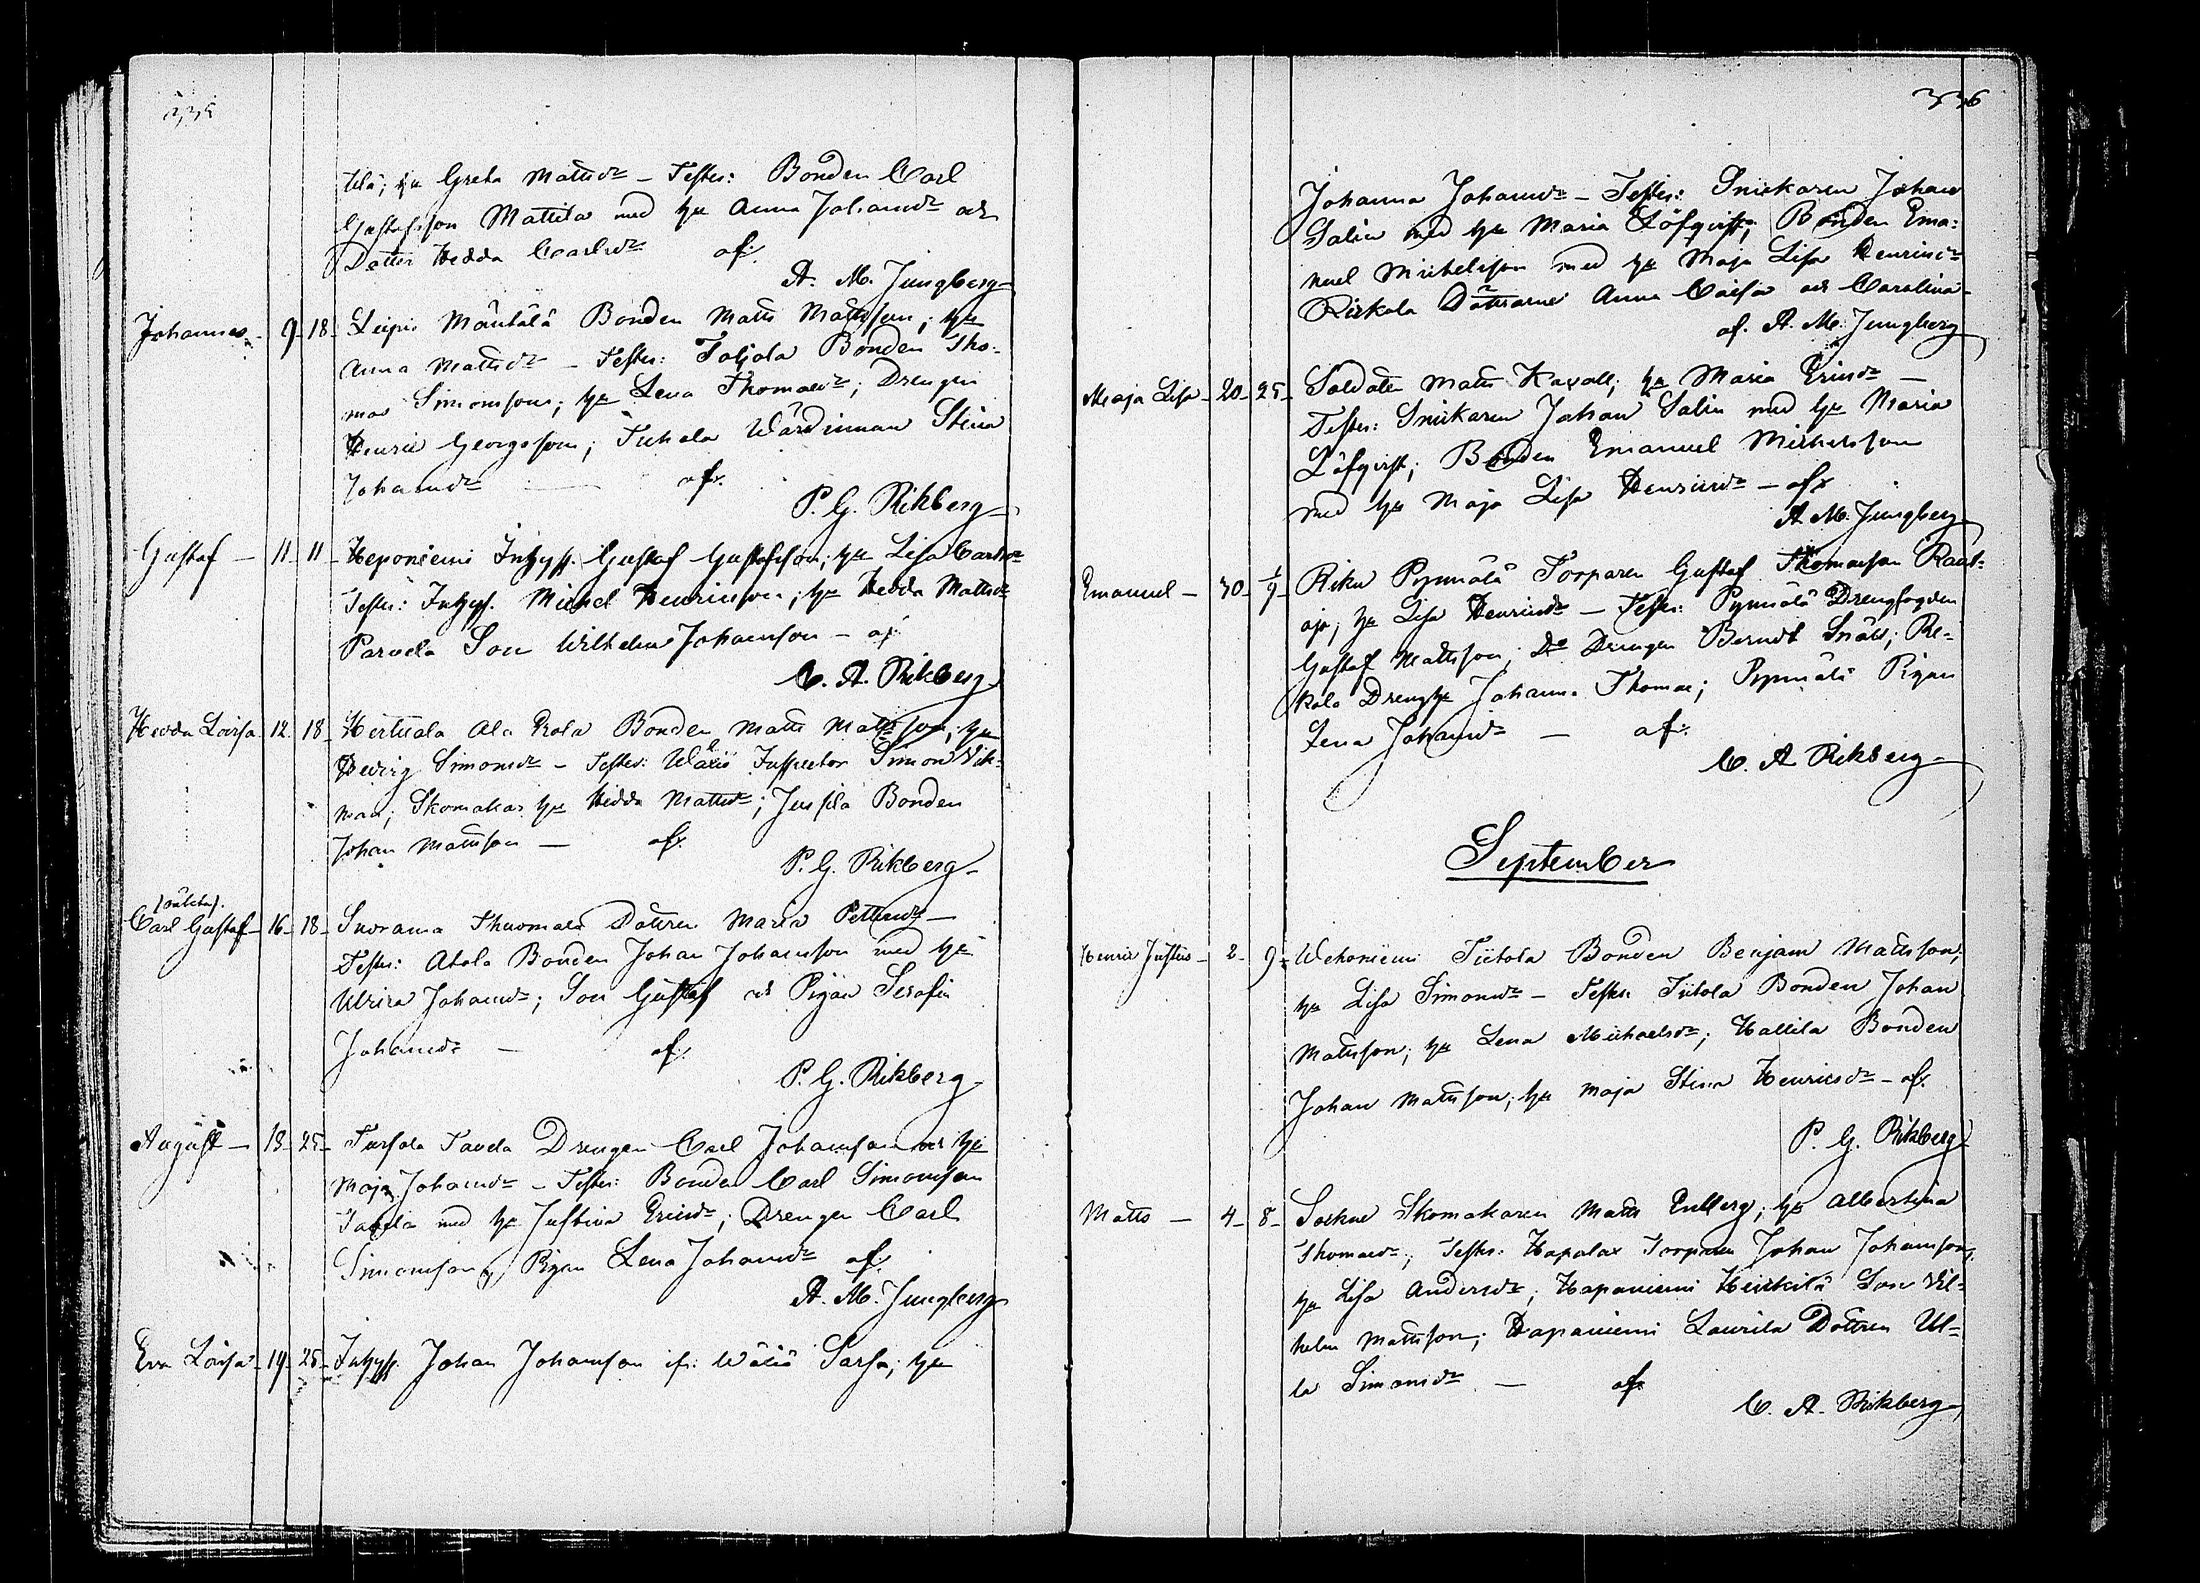 335
Greta Mattsdr – Testes: Bonden Carl
Gustafsson Mattila med hu Anna Johansdr och
Dotter Hedda Carlsdr af.
A. M. Jungberg
Johannes – 9 – 18 – Leipis Mäntälä Bonden Matts Mattsson; hu
Anna Mattsdr – Testes: Toljola Bonden Tho-
mas Simonsson; hu Lena Thomasdr; Drengen
Henric Georgsson; Tuhala Wärdinnan Stina
Johansdr af.
P. G. Rikberg
Gustaf – 11 – 11 – Heponiemi Inhyss. Gustaf Gustafsson; hu Lisa Carlsdr
Testes: Inhyss. Michel Henricsson; hu Hedda Mattsdr
Parvela Son Wilhelm Johansson – af
C. A. Rikberg
Hedda Lovisa – 12 – 18 – Hertuala Ala Bonden Matts Mattsson; hu
Hedvig Simonsdr – Testes: Wäxiö Inspector Simon Wik-
man; Skomakar hu Hedda Mattsdr; Jussila Bonden
Johan Mattsson – af.
P. G. Rikberg
(oäkta).
Carl Gustaf – 16 – 18 – Suorama Thuomala Dottren Maria Pettersdr –
Testes: Ahola Bonden Johan Johansson med hu
Ulrica Johansdr; Son Gustaf och Pigan Serafia
Johansdr – af.
P. G. Rikberg
August – 18 – 25 – Tursola Tavela Drengen Carl Johansson och hu
Maja Johansdr – Testes: Bonden Carl Simonsson
Tavela med hu Justina Ericsdr; Drengen Carl
Simonsson, Pigan Lena Johansdr af.
A. M. Jungberg
Eva Lovisa – 19 – 25 – Inhyss. Johan Johansson if: Wäxiö Sarsa; hu
336
Johanna Johansdr – Testes: Snickaren Johan
Salin med hu Maria Löfqvist; Bonden Ema-
nuel Michelsson med hu Maja Lisa Henricsdr
Riskala Döttrarne Anna Caisa och Carolina –
af. A. M. Jungberg
Maja Lisa – 20 – 25 – Soldaten Matts Kavall; hu Maria Ericsdr –
Testes: Snickaren Johan Salin med hu Maria
Löfqvist; Bonden Emanuel Michelsson
med hu Maja Lisa Henricsdr – af
A. M. Jungberg
Emanuel – 30 – 1/9 – Riku Pynnälä Torparen Gustaf Thomasson Raat-
oja; hu Lisa Henricsdr – Testes: Pynnälä Drengfogden
Gustaf Mattsson; Do Drengen Berndt Snäll; Re-
kola Drenghu Johanna Thomae; Pynnälä Pigan
Lena Johansdr – af.
C. A. Rikberg
September
Henric Justus – 2 – 9 – Wehoniemi Tiitola Bonden Benjam Mattsson;
hu Lisa Simonsdr – Testes: Tiitola Bonden Johan
Mattsson; hu Lena Michaelsdr; Hallila Bonden
Johan Mattsson; hu Maja Stina Henricsdr – af.
P. G. Rikberg
Matts – 4 – 8 – Sockne Skomakaren Matts Enberg; hu Albertina
Thomasdr; Testes: Hapalax Torparen Johan Johansson,
hu Lisa Andersdr; Hapaniemi Heickilä Son Wil-
helm Mattsson; Hapaniemi Laurila Dottren Ul-
la Simonsdr – af.
C. A. Rikberg